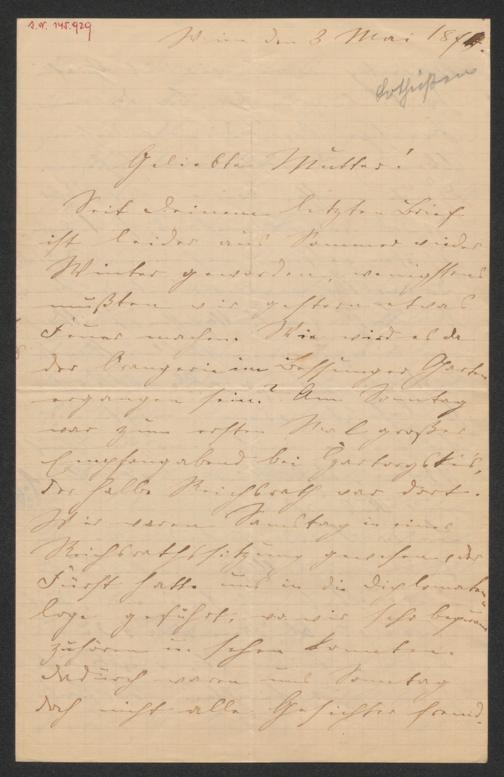 I. N. 145.929
Wien den 3 Mai 18
Lotheißen
Geliebte Mutter!
Seit Deinem letzten Brief
ist leider aus Sommer wieder
Winter geworden, wenigstens
mußten wir gestern etwas
Feuer machen. Wie wird es da
der Orangerie im Bessunger Garten
ergangen sein? Am Sonntag
war zum ersten Mal großer
Empfangabend bei Czartoryskis,
der halbe Reichsrath war dort.
Wir waren Samstag in einer
Reichsrathssitzung gewesen, der
Fürst hatte uns in die Diplomaten-
loge geführt, wo wir sehr bequem
zuhören u. sehen konnten.
Dadurch waren uns Sonntag
doch nicht alle Gesichter fremd.